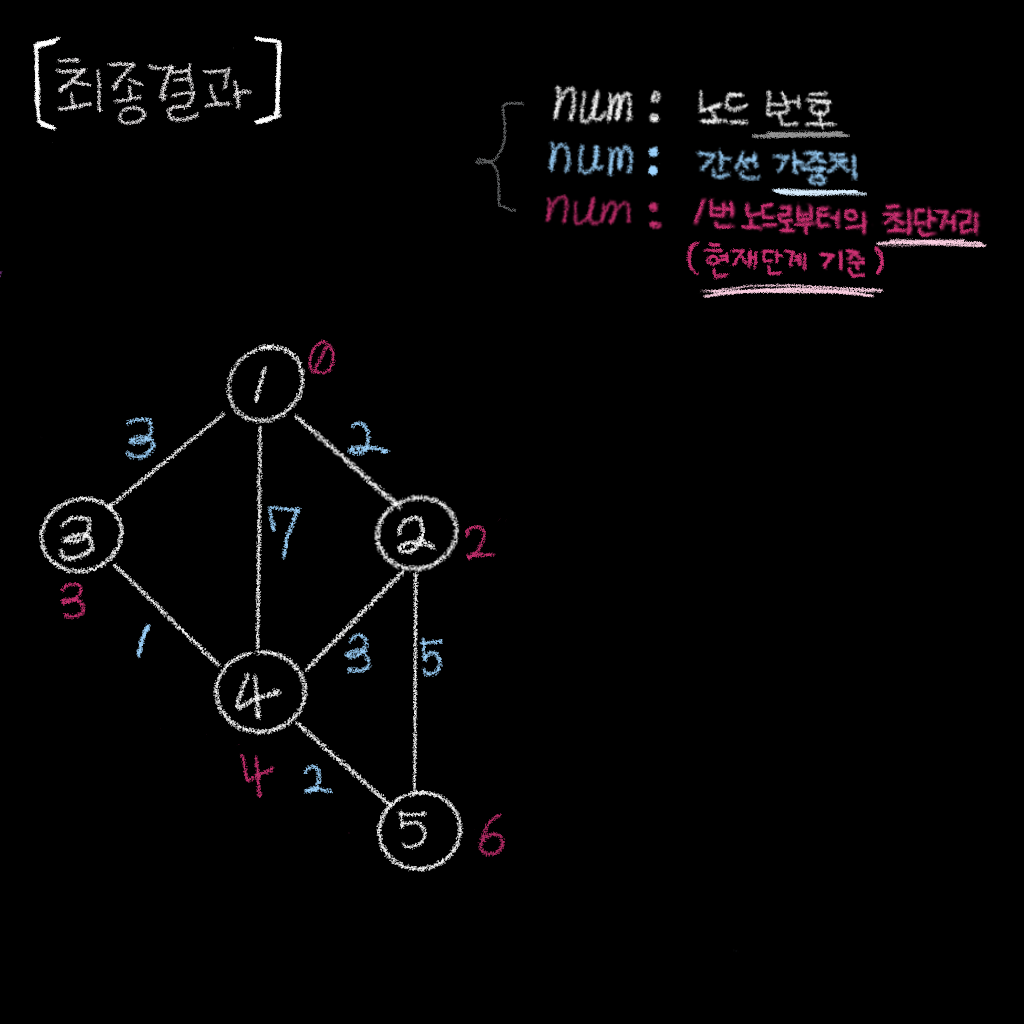 [최종결과]
num : 노드 번호
num : 간선 가중치
num : 1번 노드로부터의 최단거리
(현재단계 기준)
1 0
3 2
3 7 2 2
3
1 3 5
4
4 2
5 6